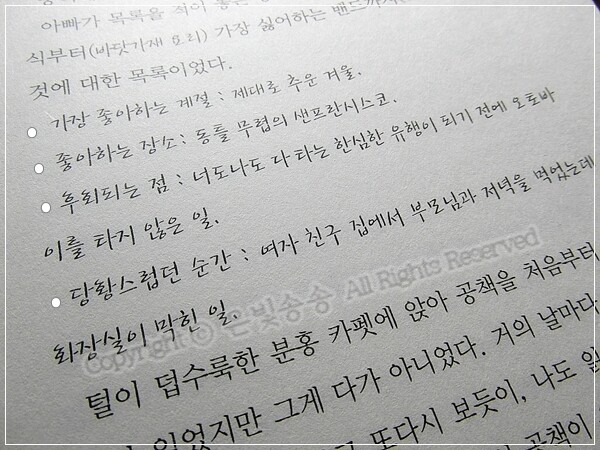 아빠가 목록을 적어 놓은
식부터(바닷가재 요리) 가장 싫어하는 밴드까지
것에 대한 목록이었다.
• 가장 좋아하는 계절 : 제대로 추운 겨울.
• 좋아하는 장소 : 동틀 무렵의 샌프란시스코.
• 후회되는 점 : 너도나도 다 타는 한심한 유행이 되기 전에 오토바
이를 타지 않은 일.
• 당황스럽던 순간 : 여자 친구 집에서 부모님과 저녁을 먹었는데
화장실이 막힌 일.
털이 덥수룩한 분홍 카펫에 앉아 공책을 처음부터
있었지만 그게 다가 아니었다. 거의 날마다
또다시 보듯이, 나도
공책이
Copyright © 은빛송송 All Rights Reserved